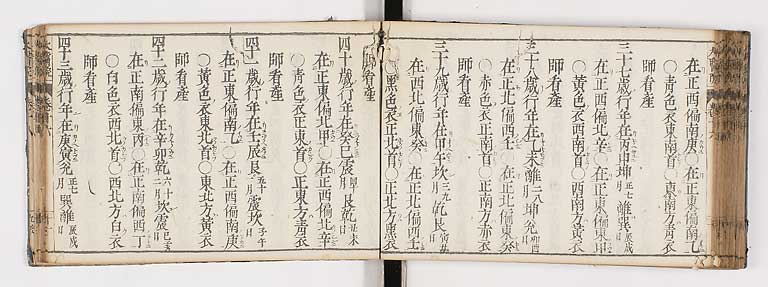 在正西偏南庚○在正東偏南乙
○青色衣東南首○東南方青衣
師看産
三十七歳行年在丙申坤正七月離巽辰戌日
在正西偏北辛○在正東偏南
○黄色衣西南首○西南方黄衣
師看産
三十八歳行年在乙未離二八月坤兌卯酉日
在正北偏西壬○在正北偏東癸
○赤色衣正南首○正南方赤衣
師看産
三十九歳行年在甲午坎三九月乾艮寅申日
在西北偏東癸○在正北偏西壬
○黒色衣正北首○正北方黒衣
師看産
四十歳行年在癸巳震艮乾丑未日
在正東偏北甲○在正西偏北辛
○青色衣正東首○正東方青衣
師看産
四十一歳行年在壬辰艮五十一月震坎子午日
在正東偏南乙○在正西偏南庚
○黄色衣東北首○東北方黄衣
師看産
四十二歳行年在辛卯乾六十二月坎震巳亥日
在正南偏東丙○在正南偏西丁
○白色衣西北首○西北方白衣
師看産
四十三歳行年在庚寅兌正七月巽離辰戌日